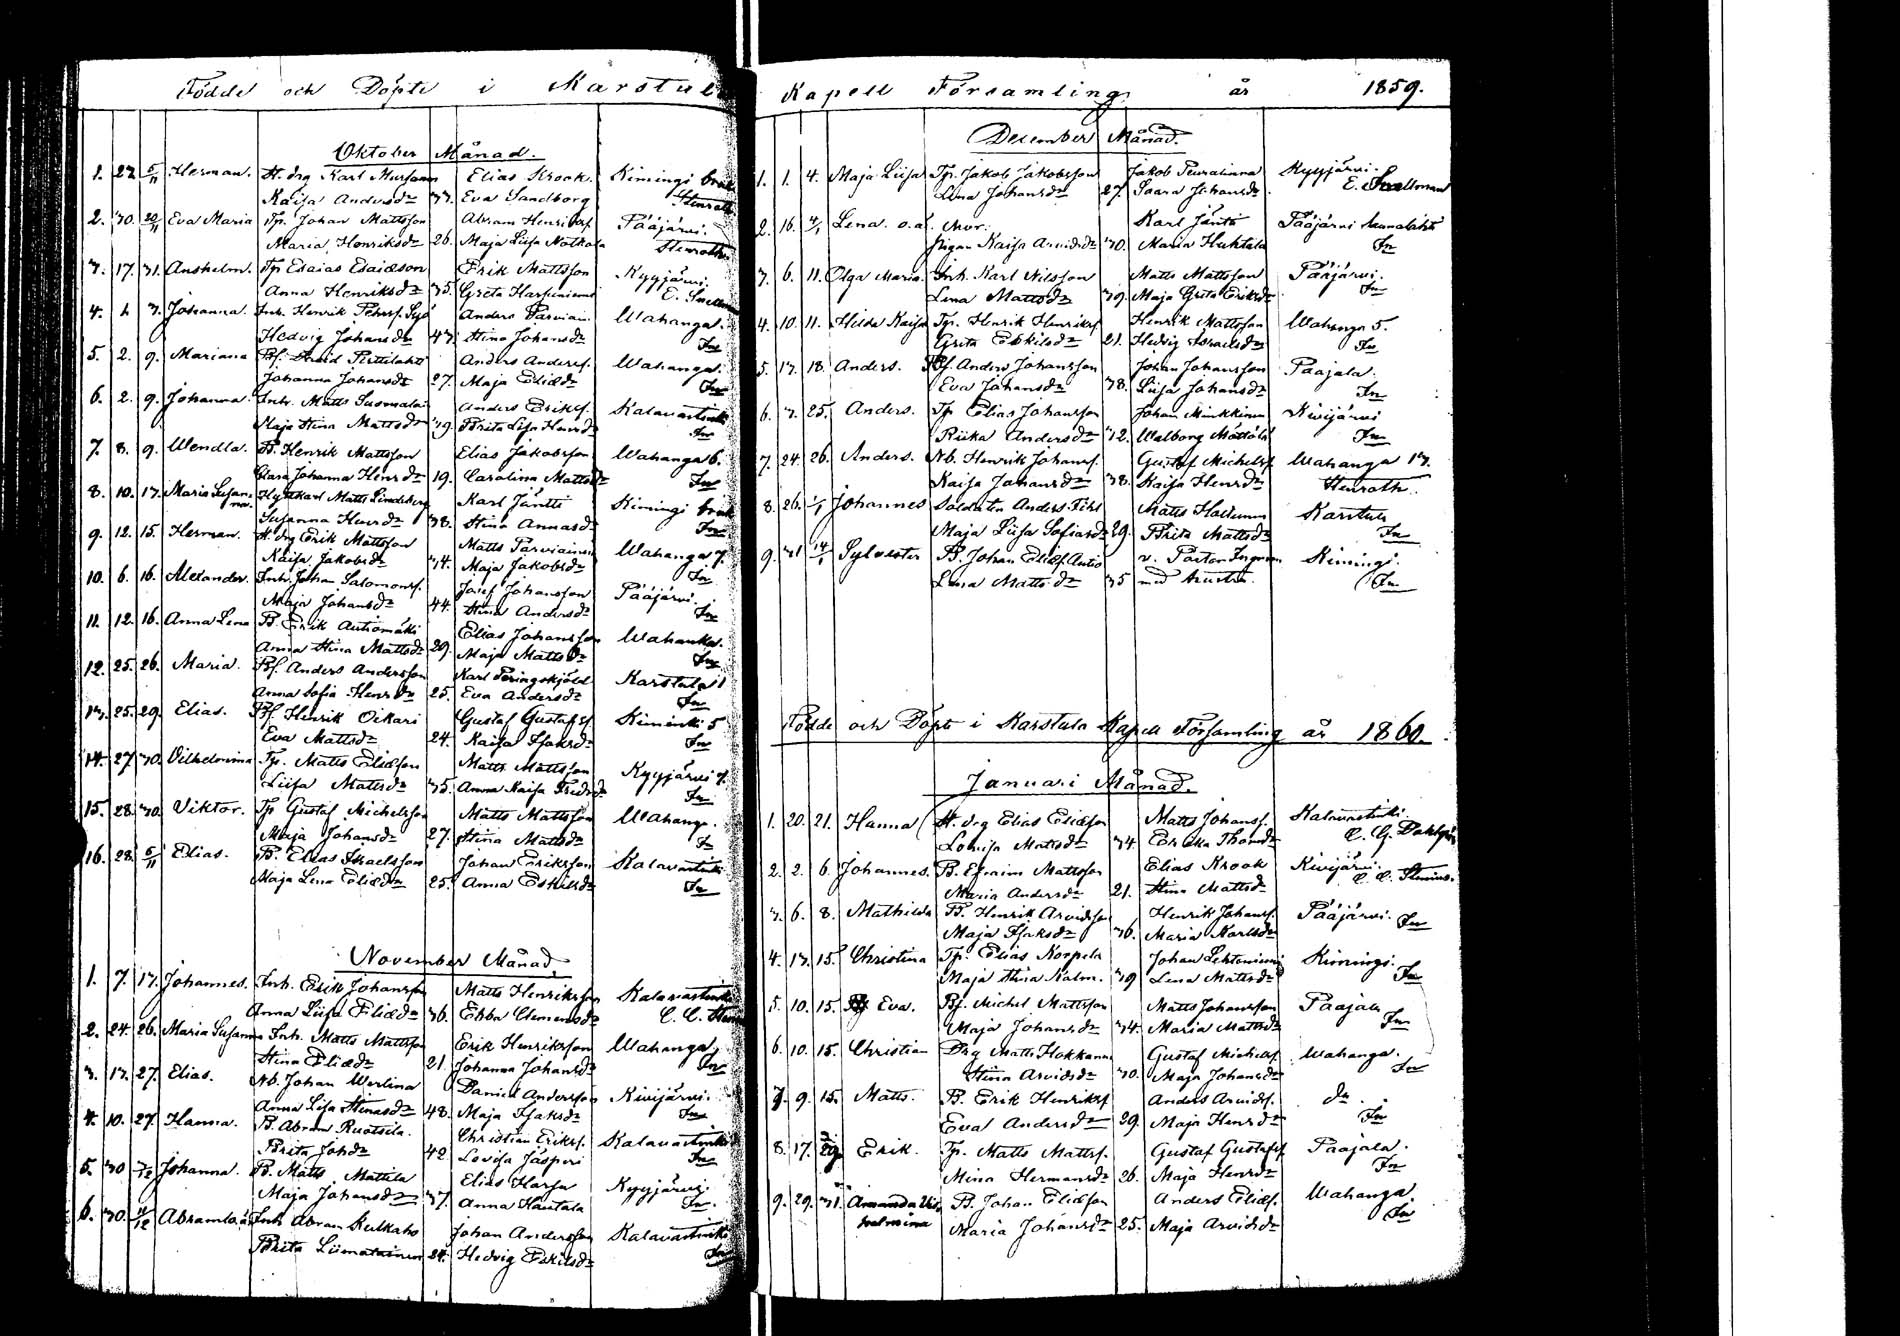 Födde och Döpte i Karstula Kapell Församling år 1859.
Oktober Månad.
1. 27 5/11 Herman. St. drg Karl Elias Krook. Kimingi bruk
Kaisa Andersdr 33. Eva Sandborg Stenroth
2. 30. 20/11 Eva Maria Tp. Johan Mattsson Abram Henriksf. Pääjärvi.
Maria Henriksdr 26. Maja Liisa Stenroth
3. 17. 31. Anshelm. Tp Esaias Esaiesson Erik Mattsson Kyyjärvi.
Anna Henriksdr 35. Greta E. Snellman
4. 1 3. Johanna. Inh. Henrik Anders Parviain. Wahanga.
Hedvig Johansdr 43. Stina Johansdr In
5. 2. 9. Mariana Bf. Anders Andersf. Wahanga.
Johanna Johansdr 27. Maja Eliædr In
6. 2. 9. Johanna. Inh. Matts Anders Eriksf. Kalavastinki
Maja Stina Mattsdr 39. Brita Lisa Henrdr In
7. 8. 9. Wendla. B. Henrik Mattsson Elias Jakobsson Wahanga 6.
Clara Johanna Henrdr 19. Carolina Mattsdr In
8. 10. 17. Maria Susanna. Matts Lindeberg Karl Jäntti Kimingi bruk
Susanna Henrdr 38. Stina Annasdr In
9. 12. 15. Herman. St. drg Erik Mattsson Matts Parviainen Wahanga 7.
Kaisa Jakobsdr 34. Maja Jakobsdr In
10. 6. 16. Alexander. Inh. Johan Salomonsf. Josef Johansson Pääjärvi.
Maja Johansdr 44. Stina Andersdr In
11. 12. 16. Anna Lena B. Erik Autiomäki Elias Johansson Wahanka.
Anna Stina Mattsdr 29. Maja Mattsdr In
12. 25. 26. Maria. Bf. Anders Andersson Karl Karstula 1
Anna Sofia Henrdr 25. Eva Andersdr In
13. 25. 29. Elias. Bf. Henrik Oikari Gustaf Gustafsf. Kiminki 5
Eva Mattsdr 24. Kaisa Isaksdr In
14. 27 30. Vilhelmina Tp. Matts Eliæson Matts Mattsson Kyyjärvi 7.
Liisa Mattsdr 35. Anna Kaisa Fredrdr In
15. 28. 30. Viktor. Tp Gustaf Michelsson Matts Mattsson Wahanga.
Maja Johansdr 27. Stina Mattsdr In
16. 28. 5/11 Elias. B. Elias Israelsson Johan Eriksson Kalavastinki
Maja Lena Eliædr 25. Anna Eskilsdr In
November Månad.
1. 7. 17. Johannes. Inh. Erik Johansson Matts Henriksson Kalavastinki
Anna Liisa Eliædr 36. Ebba Clemensdr C. C.
2. 24. 26. Maria Susanna Inh. Matts Mattsson Erik Henriksson Wahanga.
Stina Eliædr 21. Johanna Johansdr In
3. 13. 27. Elias. Nb. Johan Werlina Daniel Andersson Kivijärvi.
Anna Lisa Stinasdr 48. Maja Isaksdr In
4. 10. 27. Hanna. B. Abram Ruotsila. Christian Eriksf. Kalavastinki
Brita Johdr 42. Lovisa Jäsperi In
5. 30 Johanna. B. Matts Mattila Elias Harja Kyyjärvi.
Maja Johansdr 37. Anna Hautala In.
6. 30. 11/12 Abram Inh. Abram Kulkaho Johan Andersson Kalavastinki
Brita Liimatainen 24. Hedvig Eskilsdr In
December Månad.
1. 1. 4. Maja Liisa Tp. Jakob Jakobsson Jakob Peuralinna Kyyjärvi.
Lena Johansdr 27. Saara Johansdr. E. Snellman
2. 16. 4/1 Lena. o.ä. Mor: Karl Jäntti Pääjärvi Saunalahti
Pigan Kaisa Arvidsdr 30. Maria Huhtala In
3. 6. 11. Olga Maria. Inh. Karl Nilsson Matts Mattsson Pääjärvi.
Lena Mattsdr 39. Maja Greta Eriksdr In
4. 10. 11. Hilda Kaisa Tp. Henrik Henriksf. Henrik Mattsson Wahanga 5.
Greta Eskilsdr 21. Hedvig Israelsdr In
5. 17. 18. Anders. Bf. Anders Johansson Johan Johansson Paajala.
Eva Johansdr 38. Liisa Johansdr In
6. 3. 25. Anders. Tp Elias Johansson Johan Minkkinen Kivijärvi
Riika Andersdr 32. Walborg Möttölä In
7. 24. 26. Anders. Nb. Henrik Johansf. Gustaf Michelsf. Wahanga 13.
Kaisa Johansdr 38. Kaisa Henrdr Stenroth.
8. 26. 1/1 Johannes Soldaten Anders Matts Karstula
Maja Liisa Sofiasdr 29. Brita Mattsdr In
9. 31 14/1 Sylvester B. Johan Eliæsf. Autio v. Pastor Ingman Kimingi.
Lena Mattsdr 35 med hustru. In
Födde och Döpte i Karstula Kapell Församling år 1860.
Januari Månad.
1. 20. 21. Hanna St. drg Elias Eliæson Matts Johansf. Kalavastinki.
Lovisa Mattsdr 34 Ericka Thomdr C. G.
2. 2. 6. Johannes. B. Efraim Mattsson Elias Krook Kivijärvi.
Maria Andersdr 21. Stina Mattsdr C. C. Stenius.
3. 6. 8. Mathilda B. Henrik Arvidsson Henrik Johansf. Pääjärvi.
Maja Isaksdr 36. Maria Karlsdr In
4. 13. 15. Christina Tp. Elias Korpela Johan Lehtoniemi Kimingi.
Maja Stina Kalm. 39 Lena Mattsdr In
5. 10. 15. Eva. Bf. Michel Mattsson Matts Johansson Paajala
Maja Johansdr 34. Maria Mattsdr In
6. 10. 15. Christian Drg Matts Hokkanen Gustaf Michelsf. Wahanga.
Stina Arvidsdr 30. Maja Johansdr In
7. 9. 15. Matts. B. Erik Henriksf. Anders Arvidsf. dr.
Eva Andersdr 29. Maja Henrdr In
8. 17. 29 Erik. Tp. Matts Mattsf. Gustaf Gustafsf Paajala.
Mina Hermansdr 26. Maja Henrdr In
9. 29. 31. Amanda Vilhelmina B. Johan Eliæson Anders Eliæsf. Wahanga.
Maria Johansdr 25. Maja Arvidsdr In